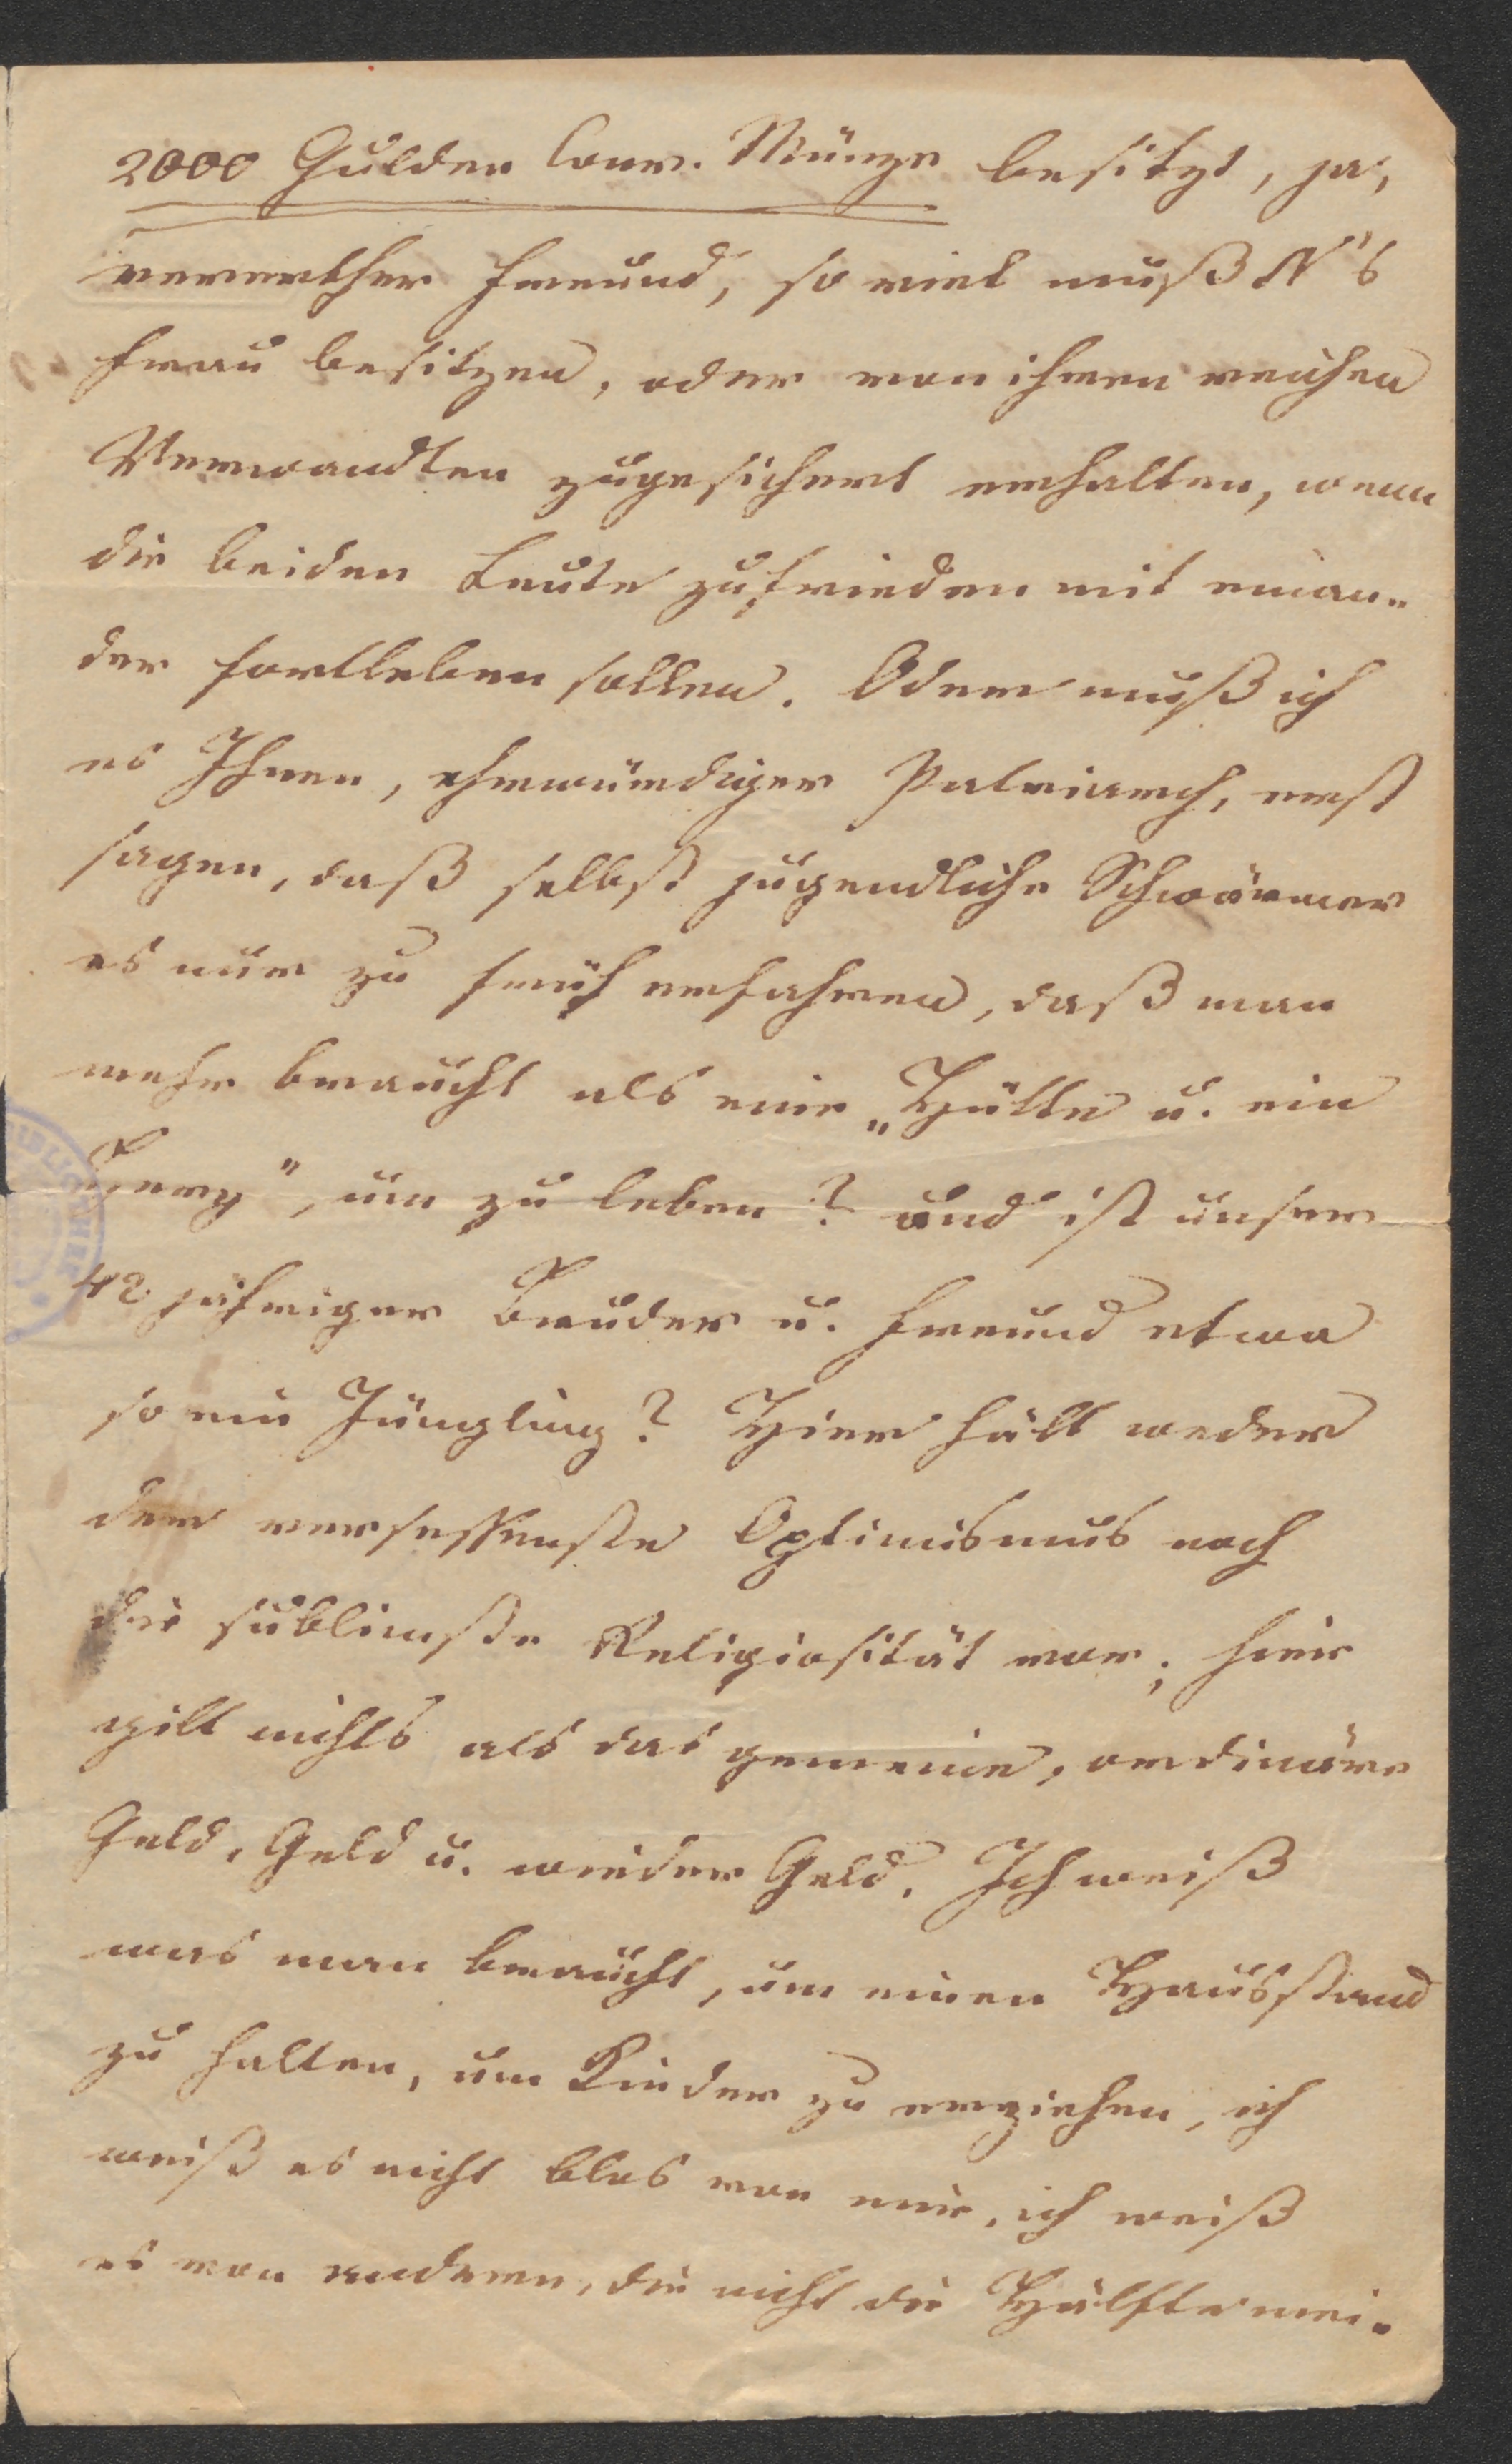 2000 Gulden Conv. Münze besitzt, ja,
verehrther Freund, so viel muß N's
Frau besitzen, oder von ihren reichen
Verwandten zugesichert erhalten, wenn
die beiden Leute zufrieden mit einan-
der fortleben sollen. Oder muß ich
es Ihnen, ehrwürdiger Patriarch, erst
sagen, daß selbst jugendliche Schwärmer
es nur zu früh erfahren, daß man
mehr braucht als eine „Hütte u. ein
Herz", um zu leben? und ist unser
42 jähriger Bruder u. Freund etwa
so ein Jüngling? Hier hält weder
der versessenste Optimismus noch
die sublimste Religiosität vor; hier
gilt nichts als das gemeine, ordinäre
Geld, Geld u. wieder Geld. Ich weiß
was man braucht, um einen Hausstand
zu halten, um Kinder zu erziehen, ich
weiß es nicht blos von mir, ich weiß
es von anderen, die nicht die Hälfte mei-